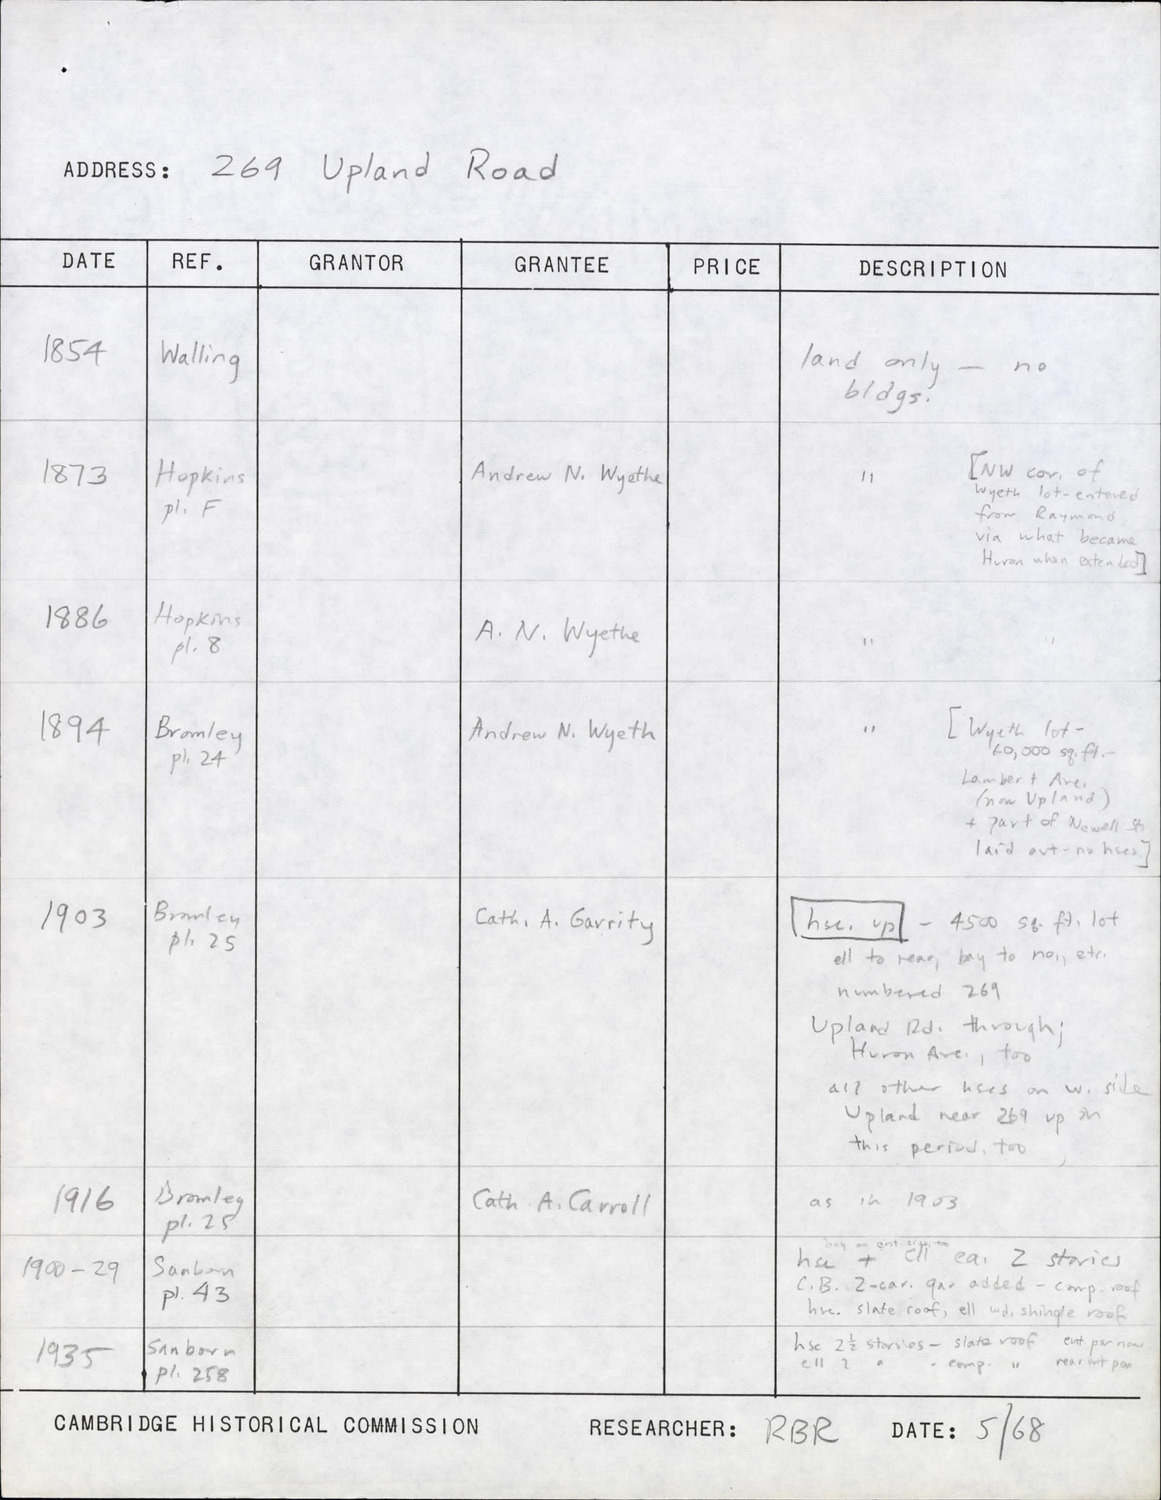 ADDRESS: 269 Upland Road
DATE REF. GRANTOR GRANTEE PRICE DESCRIPTION
1854 Walling land only — no
bldgs.
1873 Hopkins Andrew N. Wyethe " [NW cor. of
pl. F Wyeth lot - entered
from Raymond
via what became
Huron when extended]
1886 Hopkins A. N. Wyethe " "
pl. 8
1894 Bromley Andrew N. Wyeth " [Wyeth lot -
pl. 24 60,000 sq. ft. -
Lambert Ave.
(now Upland)
+ part of Newell St
laid out - no hses]
1903 Bromley Cath. A. Garrity hse. up - 4500 sq. ft. lot
pl. 25 ell to rear, bay to no., etc.
numbered 269
Upland Rd. through;
Huron Ave., too
all other hses on w. side
Upland near 269 up in
this period, too
1916 Bromley Cath. A. Carroll as in 1903
pl. 25
bay on ent.
1900-29 Sanborn hse + ell ea. 2 stories
pl. 43 C.B. 2-car. gar added - comp. roof
hse. slate roof, ell wd. shingle roof
1935 Sanborn hse 2½ stories - slate roof ent. por now
pl. 258 ell 2 " - comp. " rear ent por
CAMBRIDGE HISTORICAL COMMISSION RESEARCHER: RBR DATE: 5/68